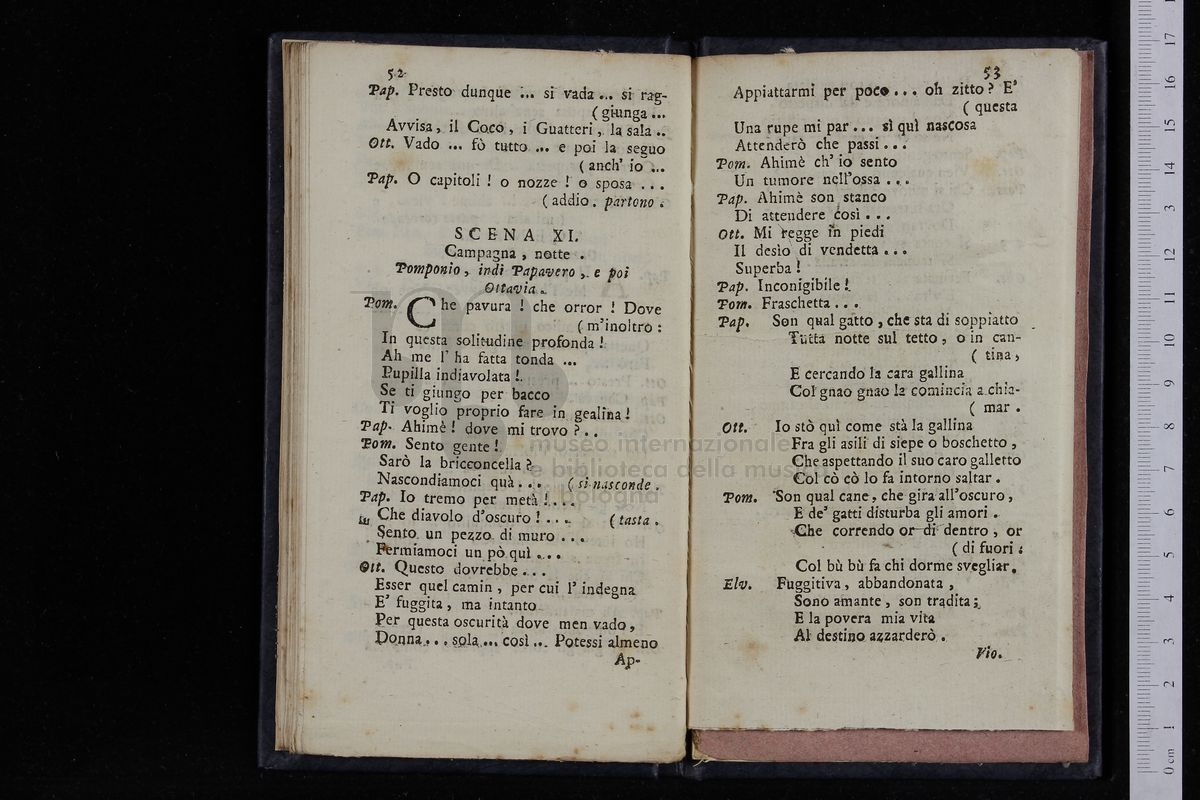 52
Pap. Presto dunque ... si vada ... si rag-
( giunga ...
Avvisa, il Coco, i Guatteri, la sala ..
Ott. Vado ... fò tutto ... e poi la seguo
( anch' io ...
Pap. O capitoli ! o nozze ! o sposa ...
( addio. partono.
SCENA XI.
Campagna, notte.
Pomponio, indi Papavero, e poi
Ottavia.
Pom. Che pavura ! che orror ! Dove
( m'inoltro :
In questa solitudine profonda !
Ah me l' ha fatta tonda ...
Pupilla indiavolata !
Se ti giungo per bacco
Ti voglio proprio fare in gealina !
Pap. Ahimè ! dove mi trovo ? ..
Pom. Sento gente !
Sarò la bricconcella ?
Nascondiamoci quà ... ( si nasconde.
Pap. Io tremo per metà ! ...
Che diavolo d'oscuro ! ... ( tasta.
Sento un pezzo di muro ...
Fermiamoci un pò quì ...
Ott. Questo dovrebbe ...
Esser quel camin, per cui l' indegna
E' fuggita, ma intanto
Per questa oscurità dove men vado,
Donna ... sola ... così ... Potessi almeno
Ap-
53
Appiattarmi per poco ... oh zitto ? E'
( questa
Una rupe mi par ... sì quì nascosa
Attenderò che passi ...
Pom. Ahimè ch' io sento
Un tumore nell'ossa ...
Pap. Ahimè son stanco
Di attendere così ...
Ott. Mi regge in piedi
Il desìo di vendetta ...
Superba !
Pap. Inconigibile !
Pom. Fraschetta ...
Pap. Son qual gatto, che sta di soppiatto
Tutta notte sul tetto, o in can-
( tina,
E cercando la cara gallina
Col gnao gnao la comincia a chia-
( mar.
Ott. Io stò quì come stà la gallina
Fra gli asili di siepe o boschetto,
Che aspettando il suo caro galletto
Col cò cò lo fa intorno saltar.
Pom. Son qual cane, che gira all'oscuro,
E de' gatti disturba gli amori.
Che correndo or di dentro, or
( di fuori :
Col bù bù fa chi dorme svegliar.
Elv. Fuggitiva, abbandonata,
Sono amante, son tradita ;
E la povera mia vita
Al destino azzarderò.
Vio.
museo internazionale
e biblioteca della musica
bologna
0 cm 1 2 3 4 5 6 7 8 9 10 11 12 13 14 15 16 17